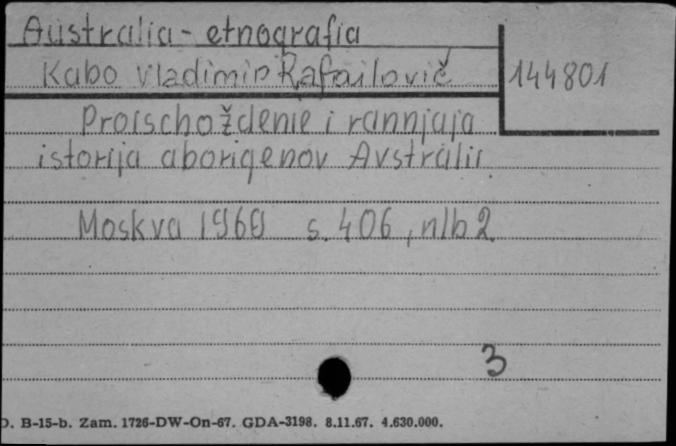 Australia - etnografia
Kabo Vladimir Rafailovič
144801
Proischoždenie i rannjaja
istorija aborigenov Avstralii
Moskva 1969 s. 406, nlb 2
3
D. B-15-b. Zam. 1726-DW-On-67. GDA-3198. 8.11.67. 4.630.000.